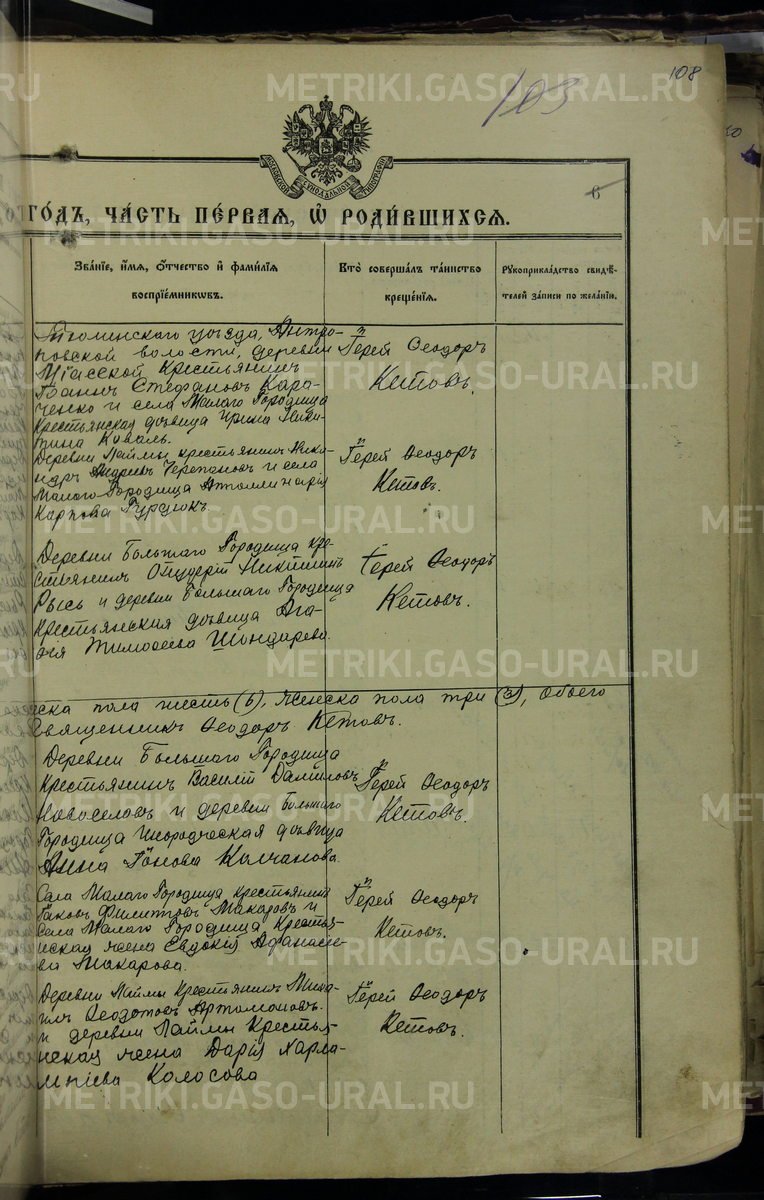 108
103
METRIKI.GASO-URAL.RU
МОСКОВСКОЙ СѴНОДАЛЬНОЙ ТИПОГРАФІИ
6
ГОДЪ, ЧАСТЬ ПЕРВАЯ, Ѡ РОДИВШИХСЯ.
Званіе, имя, отчество и фамилія воспріемниковъ.
Кто совершалъ таинство крещенія.
Рукоприкладство свидѣтелей записи по желанію.
Тюменскаго уѣзда, Антро-
повской волости, деревни
Міасской крестьянинъ
Іоаннъ Стефановъ Харо-
ченко и села Малаго Городища
крестьянская дѣвица Ирина Ники-
тина Коваль.
Іерей Ѳеодоръ
Кетовъ.
Деревни Лаймы крестьянинъ Ника-
ндръ Андреевъ Черепановъ и села
Малаго Городища Апполинарія
Карпова Гурдюкъ.
Іерей Ѳеодоръ
Кетовъ.
Деревни Большаго Городища кре-
стьянинъ Онуфрій Никитинъ
Рысь и деревни Большаго Городища
крестьянская дѣвица Ага-
ѳія Тимоѳеева Шондирева.
Іерей Ѳеодоръ
Кетовъ.
ска пола шесть (6), женска пола три (3), обоего
Священникъ Ѳеодоръ Кетовъ.
Деревни Большаго Городища
крестьянинъ Василій Даниловъ
Новоселовъ и деревни Большаго
Городища инородческая дѣвица
Анна Іонова Колчанова.
Іерей Ѳеодоръ
Кетовъ.
Села Малаго Городища крестьянинъ
Іаковъ Филипповъ Макаровъ и
села Малаго Городища кресть-
янская жена Евдокія Афанасіе-
ва Макарова.
Іерей Ѳеодоръ
Кетовъ.
Деревни Лаймы крестьянинъ Миха-
илъ Ѳеодотовъ Артомоновъ.
и деревни Лаймы кресть-
янская жена Дарія Харла-
мпіева Колосова
Іерей Ѳеодоръ
Кетовъ.